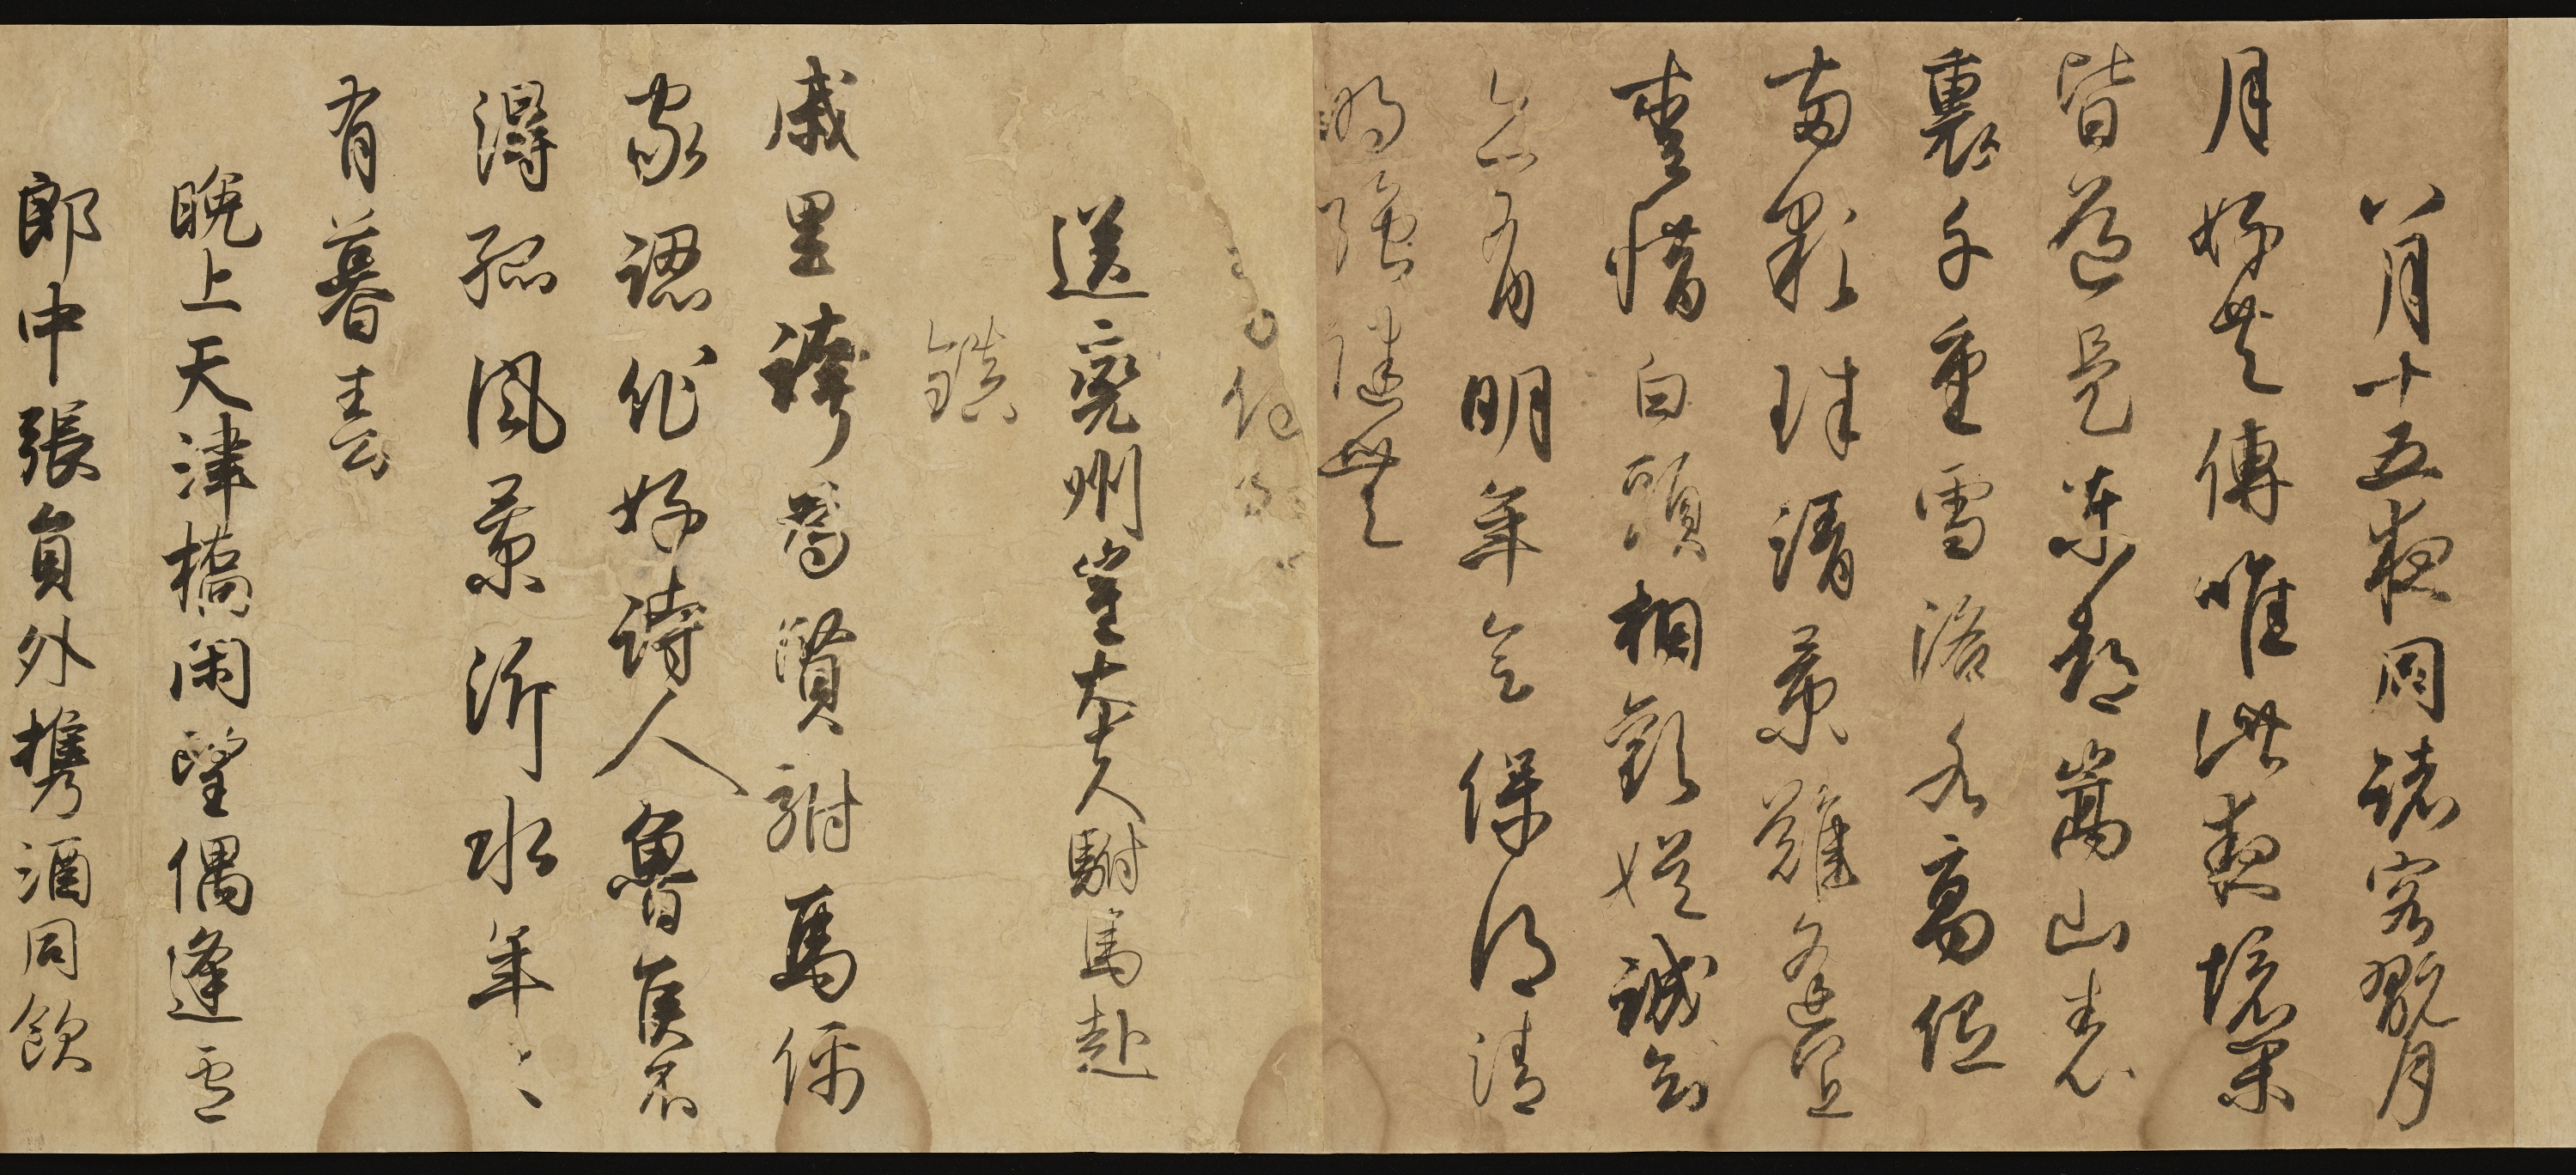 八月十五夜同諸客翫月
月好共傳唯此夜境閑
皆道是東都嵩山表
裏千重雪洛水高低
兩顆珠清景難逢宜
愛惜白頭相歡娯誠知
亦有明年會保得清
明強健無
送兗州崔大夫駙馬赴
鎮
戚里誇為賢駙馬儒
家認作好詩人魯侯不
得孤風景沂水年〻
有暮春
晚上天津橋閑望偶逢盧
郎中張員外攜酒同飲